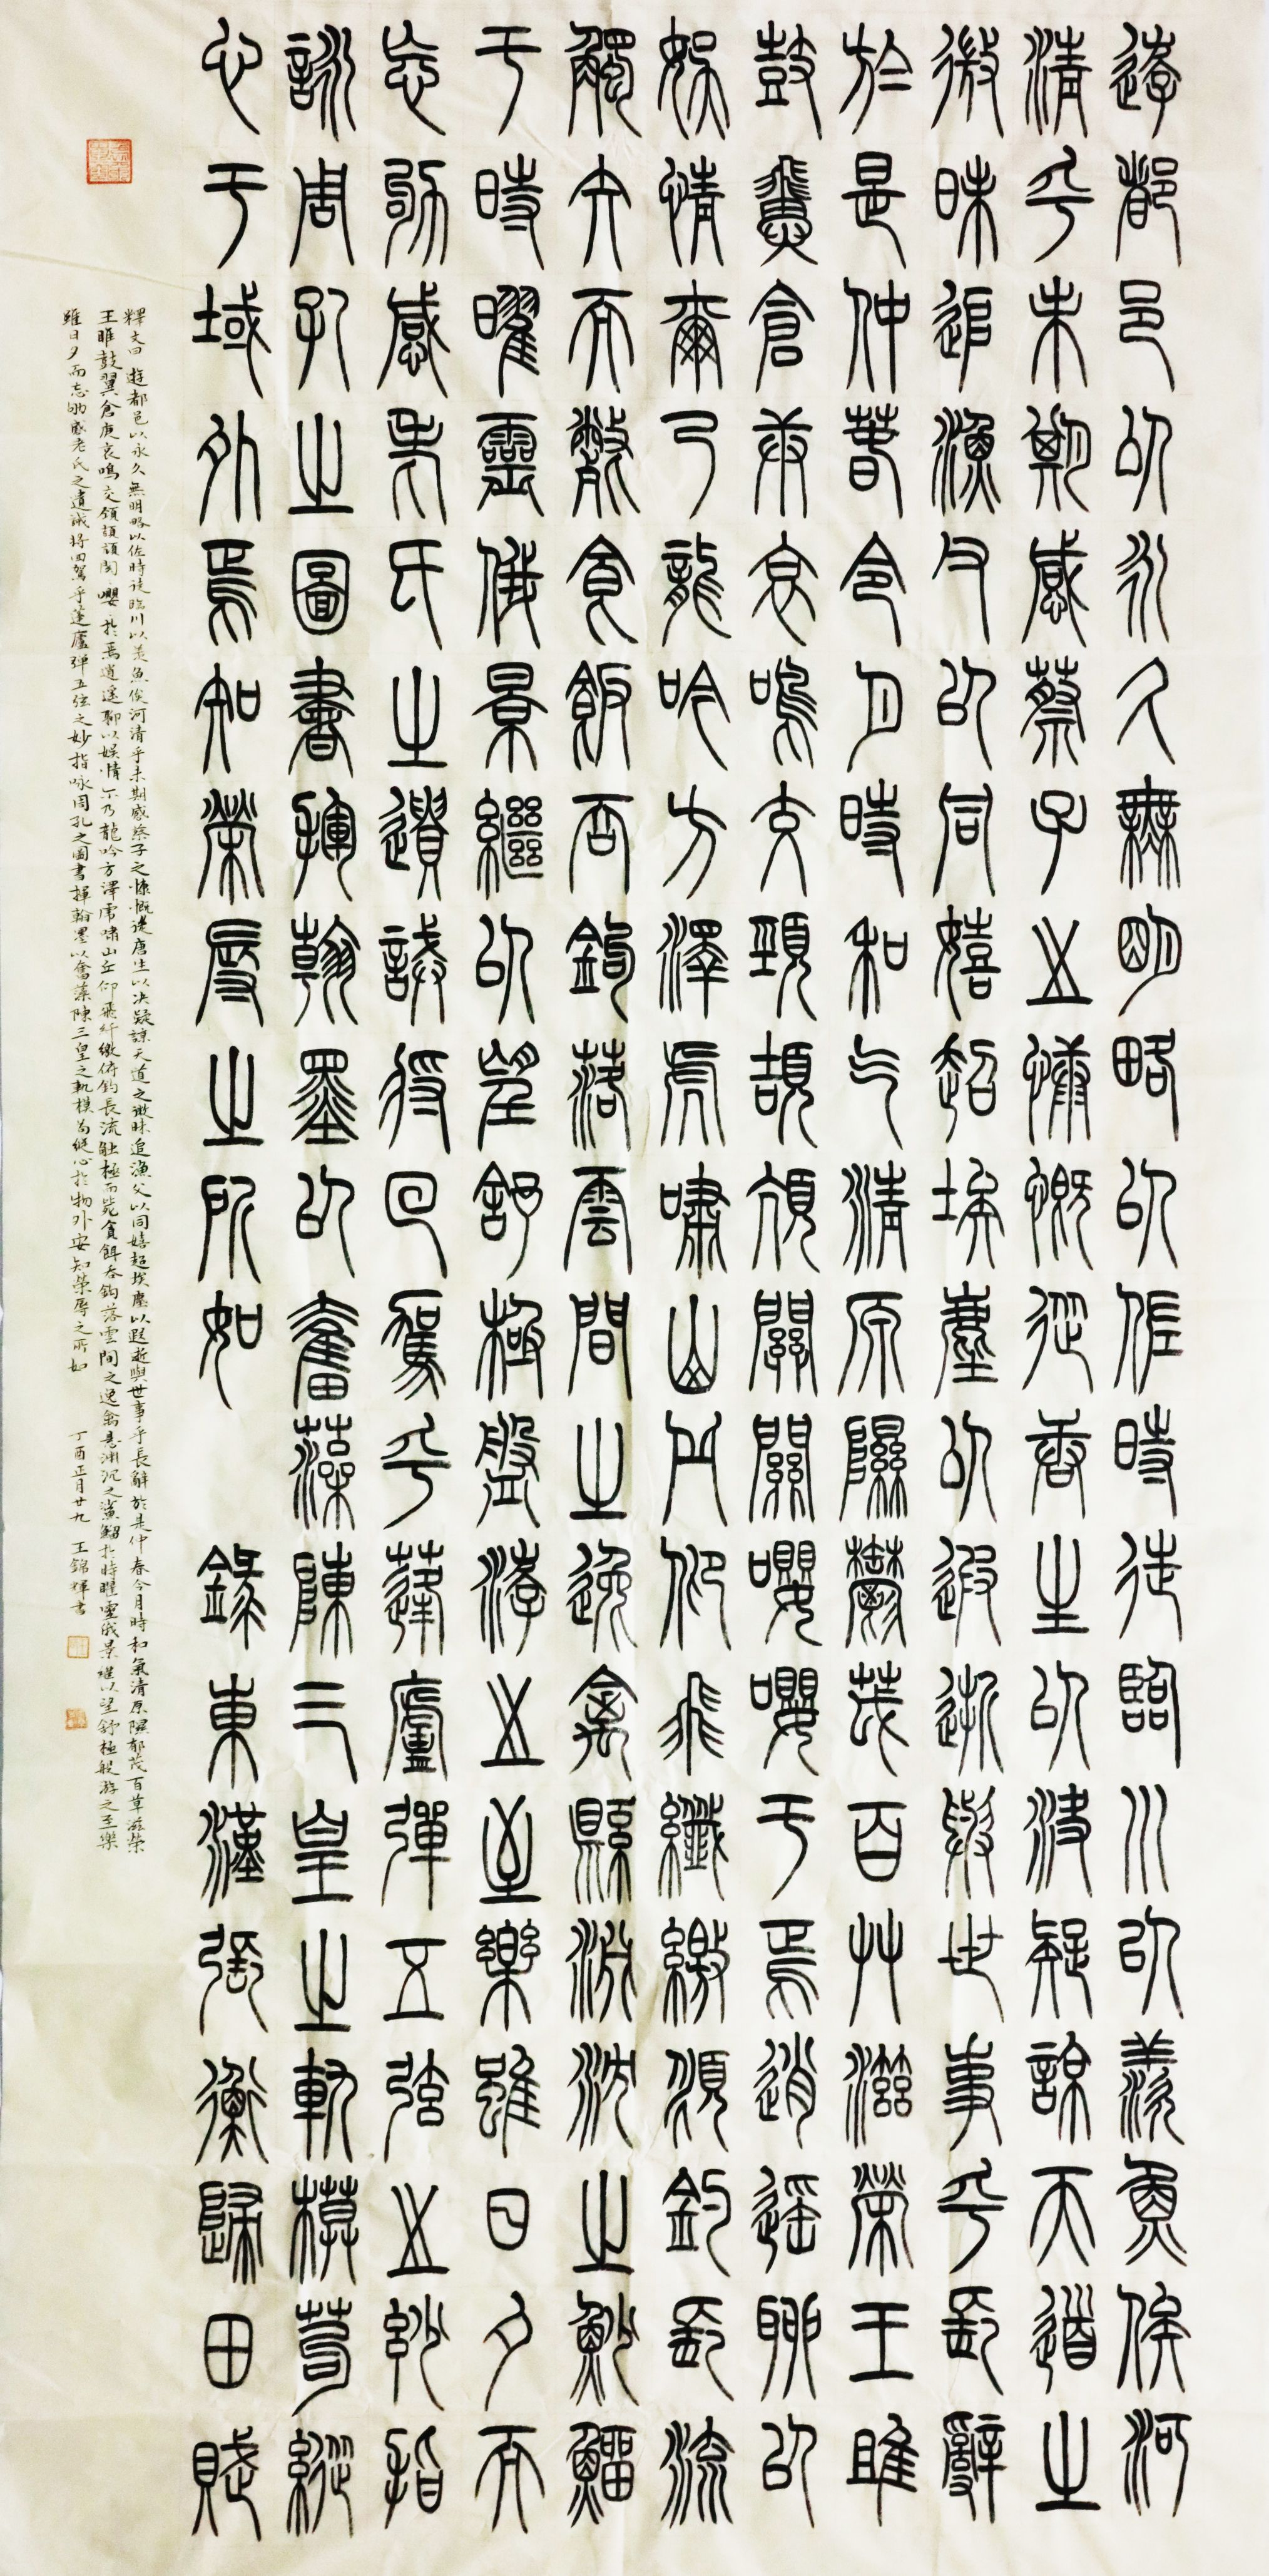 遊都邑以永久無明略以佐時徒臨川以羨魚俟河
清乎未期感蔡子之慷慨從唐生以決疑諒天道之
微昧追漁父以同嬉超埃塵以遐逝與世事乎長辭
於是仲春令月時和气清原隰鬱茂百艸滋榮王雎
鼓翼倉庚哀鳴交頸頡頏關關嚶嚶于焉逍遙聊以
娛情爾乃龍吟方澤虎嘯山丘仰飛纖繳頫釣長流
觸矢而斃貪餌吞鉤落雲間之逸禽縣淵沈之魦鰡
于時曜靈俄景繼以望舒極盤游之至樂雖日夕而
忘劬感老氏之遺誡將回駕乎蓬廬彈五弦之妙指
詠周孔之圖書揮翰墨以奮藻陳三皇之軌模苟縱
心于域外焉知榮辱之所如 錄東漢張衡歸田賦
釋文曰 遊都邑以永久無明略以佐時徒臨川以羨魚俟河清乎未期感蔡子之慷慨從唐生以決疑諒天道之微昧追漁父以同嬉超埃塵以遐逝與世事乎長辭於是仲春令月時和氣清原隰郁茂百草滋榮
王雎鼓翼倉庚哀鳴交頸頡頏関〻嚶〻於焉逍遙聊以娛情尒乃龍吟方澤虎嘯山丘仰飛纤繳俯釣長流觸極而斃貪餌吞鈎落雲間之逸禽悬渊沉之鯊鰡於時曜靈俄景繼以望舒極般游之至樂
雖日夕而忘劬感老氏之遺誡將回駕乎蓬廬弹五弦之妙指咏周孔之圖書揮翰墨以奮藻陳三皇之軌模苟縱心於物外安知榮辱之所如 丁酉正月廿九 王錦輝書